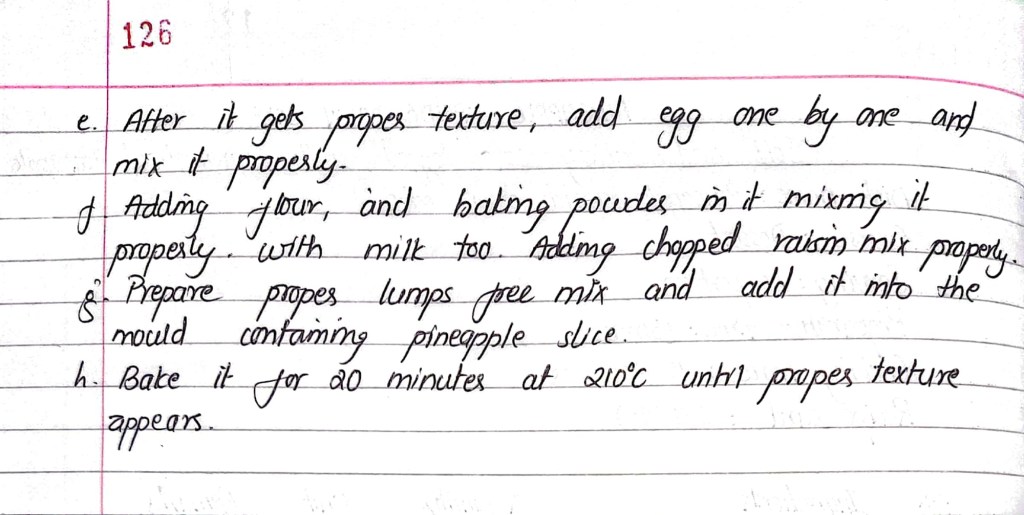 126
e. After it gets proper texture, add egg one by one and
mix it properly.
f. Adding flour, and baking powder in it mixing it
properly. with milk too. Adding chopped raisin mix properly.
g. Prepare proper lumps free mix and add it into the
mould containing pineapple slice.
h. Bake it for 20 minutes at 210°C until proper texture
appears.